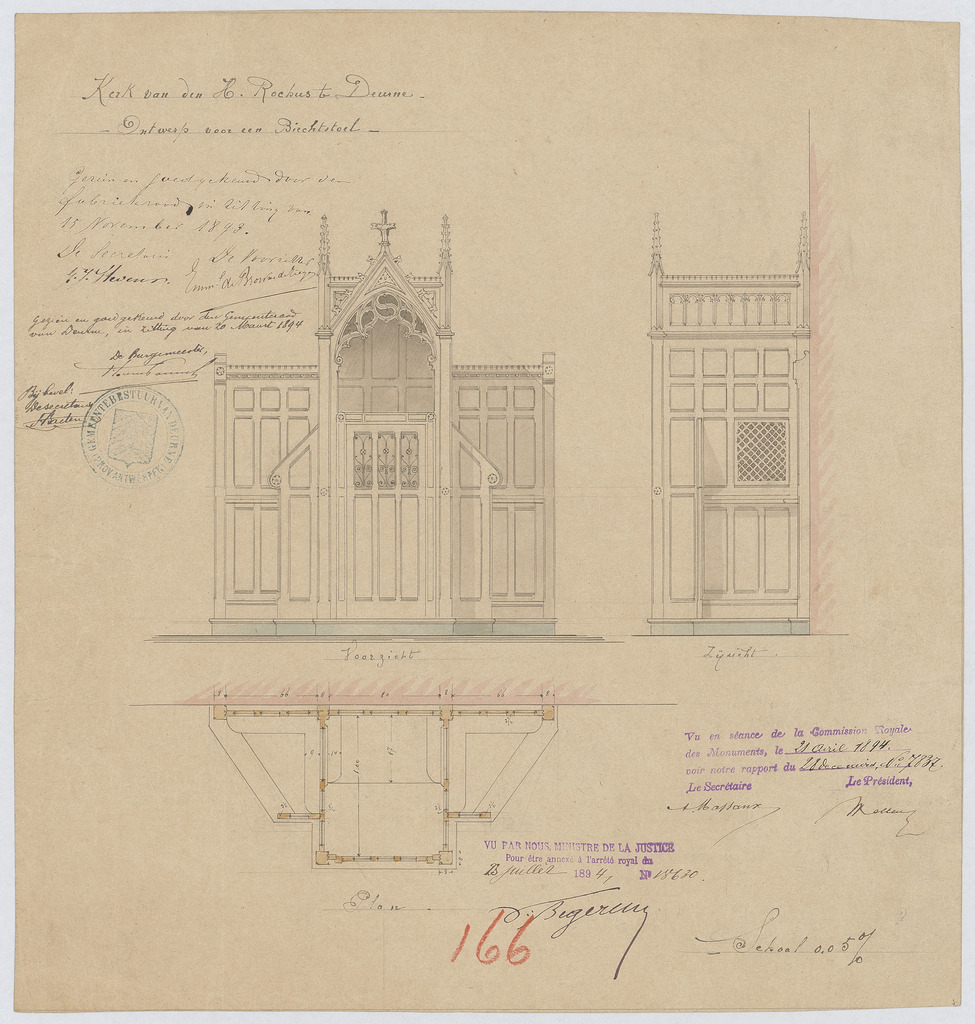 Kerk van den H. Rochus te Deurne
Ontwerp voor een Biechtstoel
Gezien en goedgekeurd door den
fabriekraad, in zitting van
15 November 1893.
De Secretaris De Voorzitter
Gezien en goedgekeurd door den Gemeenteraad
van Deurne, in zitting van 20 Maart 1894
De Burgemeester,
Bij bevel:
De secretaris
GEMEENTEBESTUUR VAN DEURNE
PROV. ANTWERPEN
Voorzicht
Zijzicht
8 66 8 80 8 66 8
1.00
Plan
Vu en séance de la Commission Royale
des Monuments, le 21 avril 1894.
voir notre rapport du No 7837.
Le Secrétaire Le Président,
VU PAR NOUS, MINISTRE DE LA JUSTICE
Pour être annexé à l'arrêté royal du
juillet 1894, No
166
Schaal 0.05 %